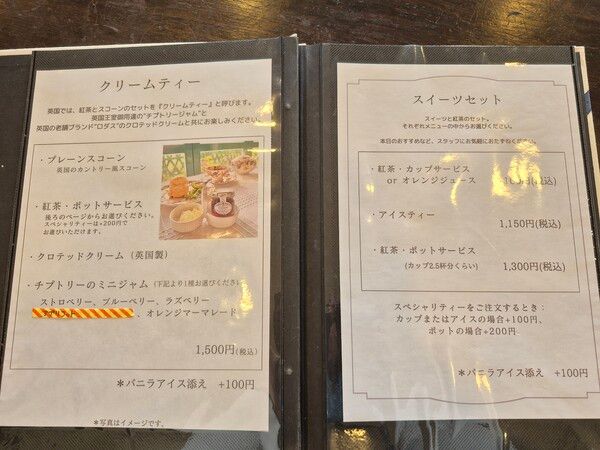 クリームティー
英国では、紅茶とスコーンのセットを『クリームティー』と呼びます。
英国王室御用達の"チプトリージャム"と
英国の老舗ブランド"ロダス"のクロテッドクリームと共にお楽しみください。
・プレーンスコーン
英国のカントリー風スコーン
・紅茶・ポットサービス
後ろのページからお選びください。
スペシャリティーは+200円で
お選びいただけます。
・クロテッドクリーム（英国製）
・チプトリーのミニジャム（下記より1種お選びください）
ストロベリー、ブルーベリー、ラズベリー
、オレンジマーマレード
1,500円(税込)
＊バニラアイス添え +100円
＊写真はイメージです。
スイーツセット
スイーツと紅茶のセット。
それぞれメニューの中からお選びください。
本日のおすすめなど、スタッフにお気軽におたずねください。
・紅茶・カップサービス
or オレンジジュース
(税込)
・アイスティー
1,150円(税込)
・紅茶・ポットサービス
(カップ2.5杯分くらい)
1,300円(税込)
スペシャリティーをご注文するとき：
カップまたはアイスの場合+100円、
ポットの場合+200円
＊バニラアイス添え +100円